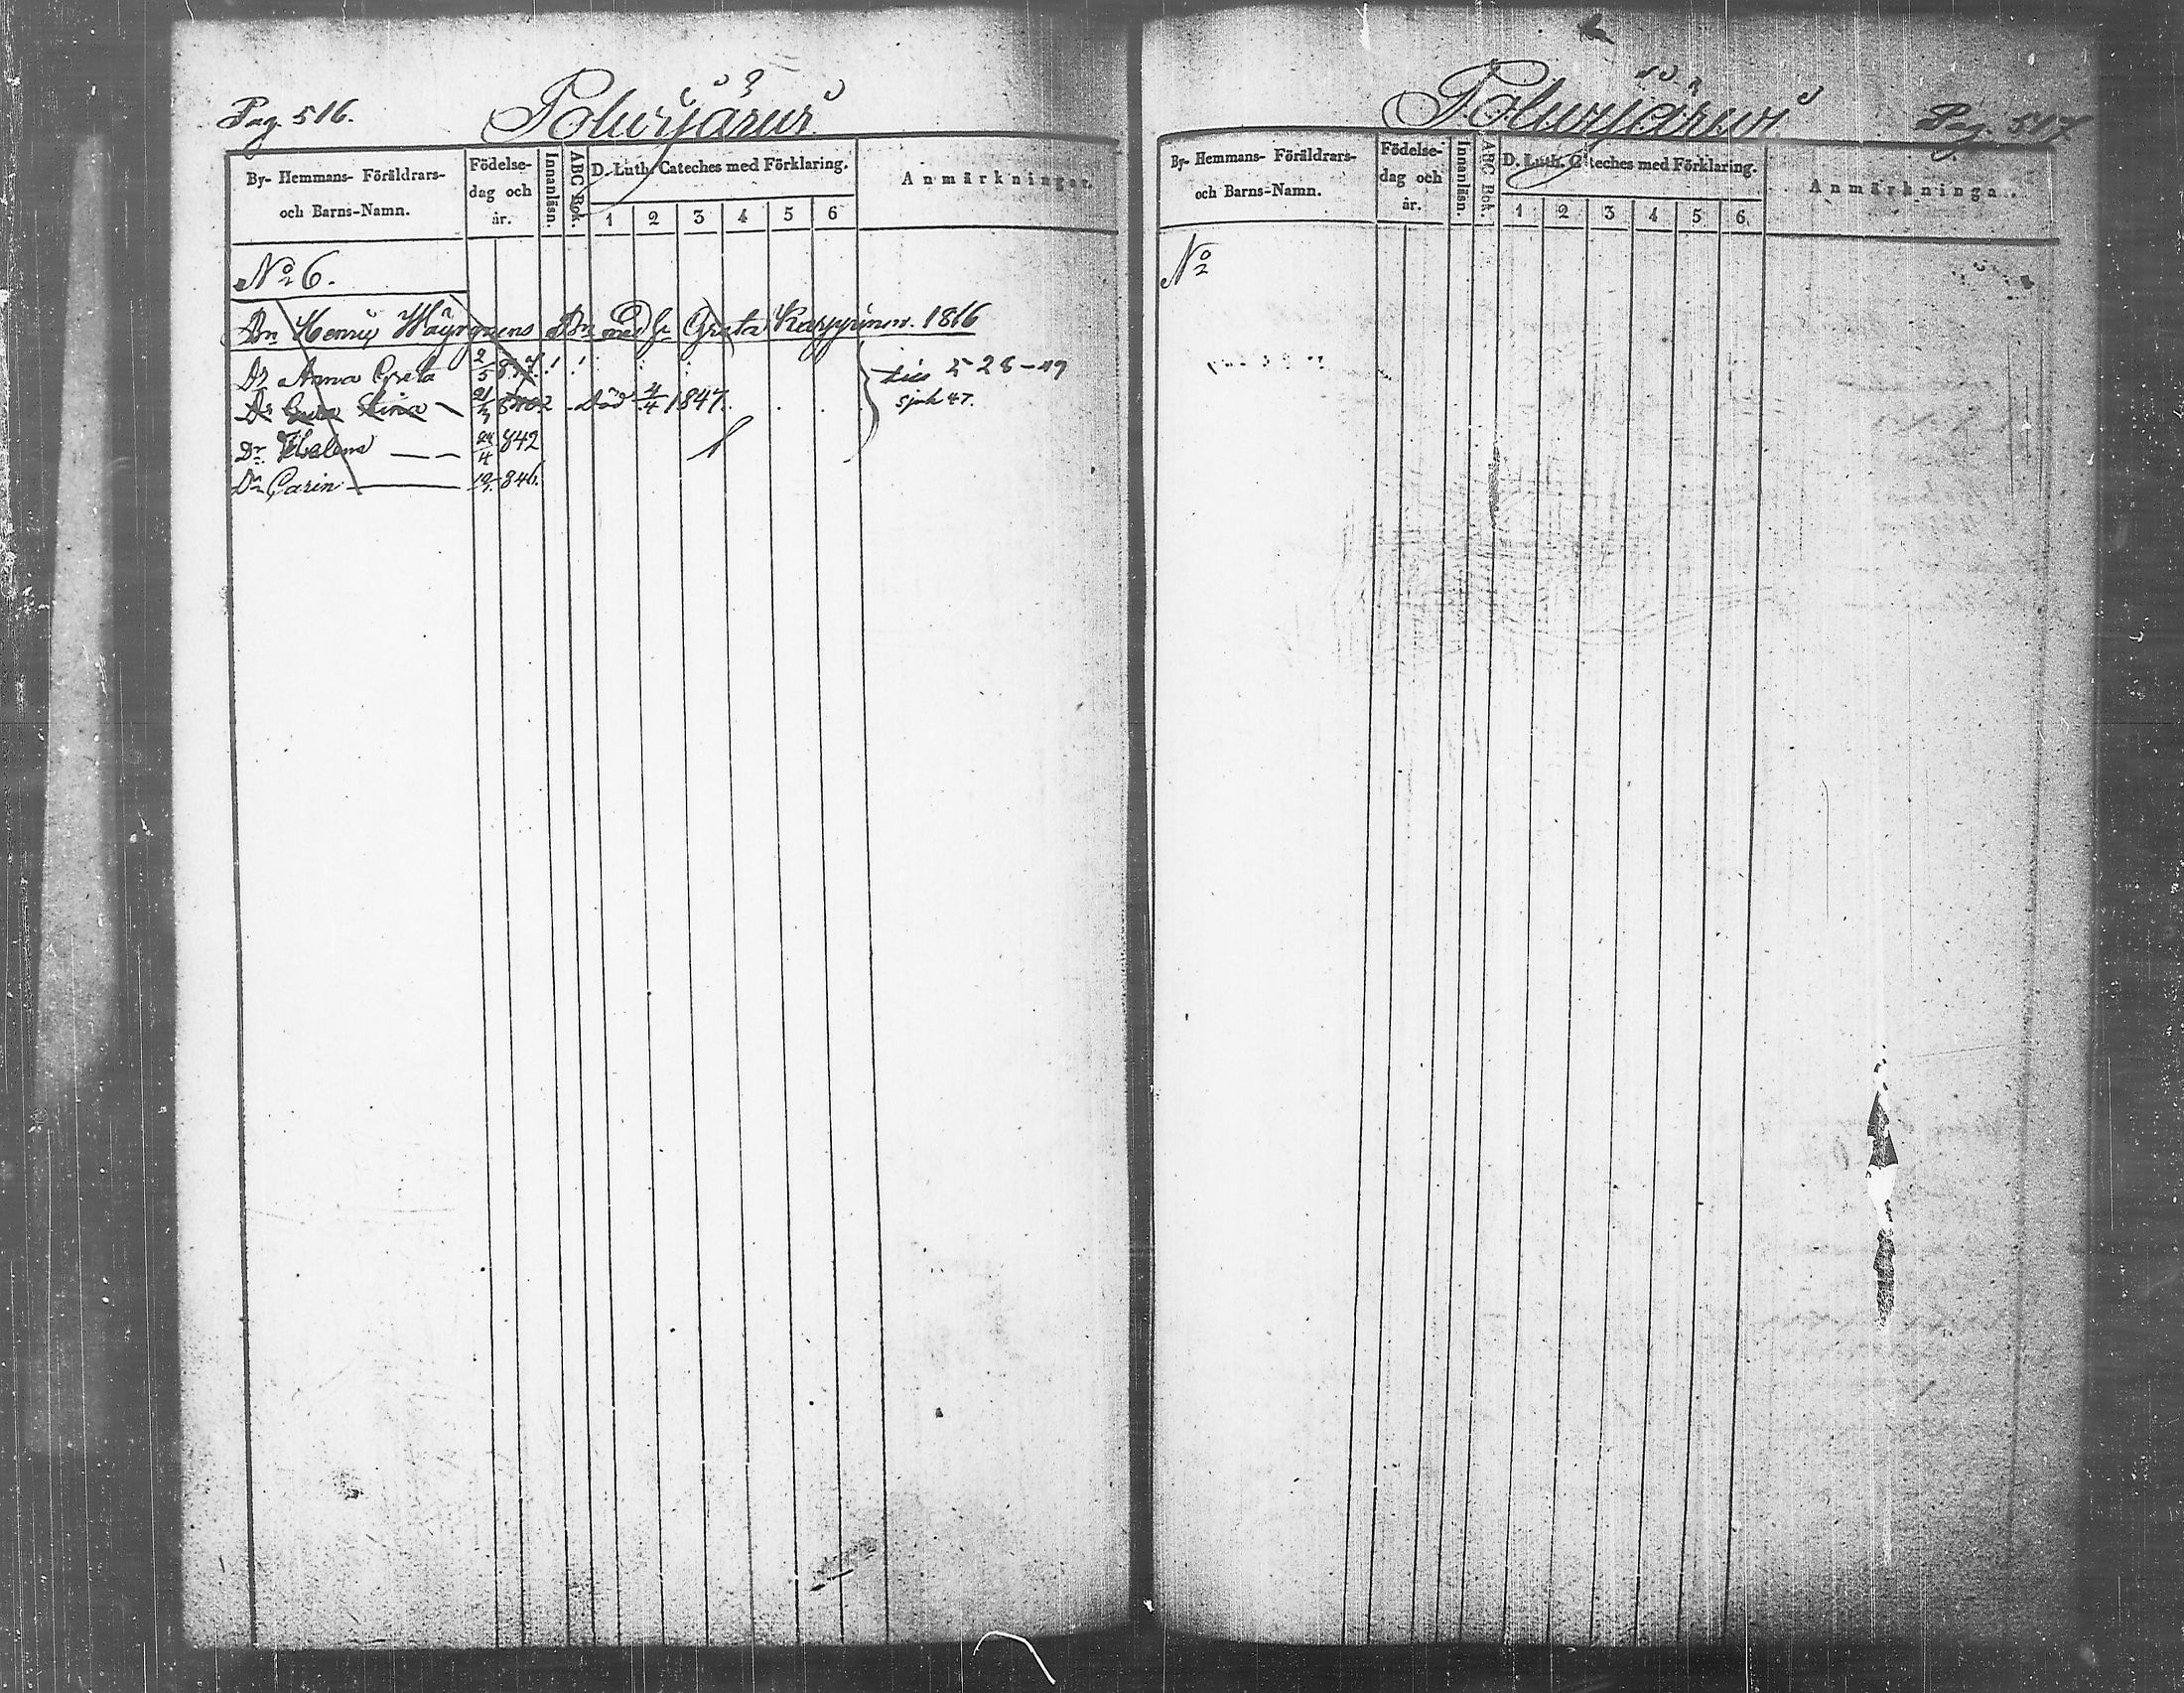 Pag. 516.
Polvijärvi
By- Hemmans- Föräldrars- och Barns-Namn.
Födelse- dag och år.
Innanläsn.
ABC Bok.
D. Luth. Cateches med Förklaring.
1 2 3 4 5 6
Anmärkningar.
No 6.
Bn Henric Väyrynens Bn med h. Greta Karppinen. 1816
Dr Anna Greta 2/5 837
Dr Stina 840 död 4/4 1847
528-49
47.
Dr Helena 24/4 842
Dr Carin 846.
Polvijärvi
Pag. 517
By- Hemmans- Föräldrars- och Barns-Namn.
Födelse- dag och år.
Innanläsn.
ABC Bok.
D. Luth. Cateches med Förklaring.
1 2 3 4 5 6
Anmärkninga
No